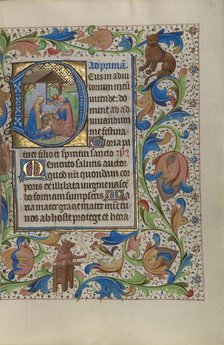 Ad primā.
Eus in adiu
torium meū
intende. do
mine ad ad
iuuandum
me festina
Gloria pa
tri et filio et spiritui sancto
Memento salutis auctor
quod nostri quondam cor
poris ex illibata uirgine nasce
do formam sumpseris Ma
ria mater gracie mater mīe tu
nos ab hoste protege et hora